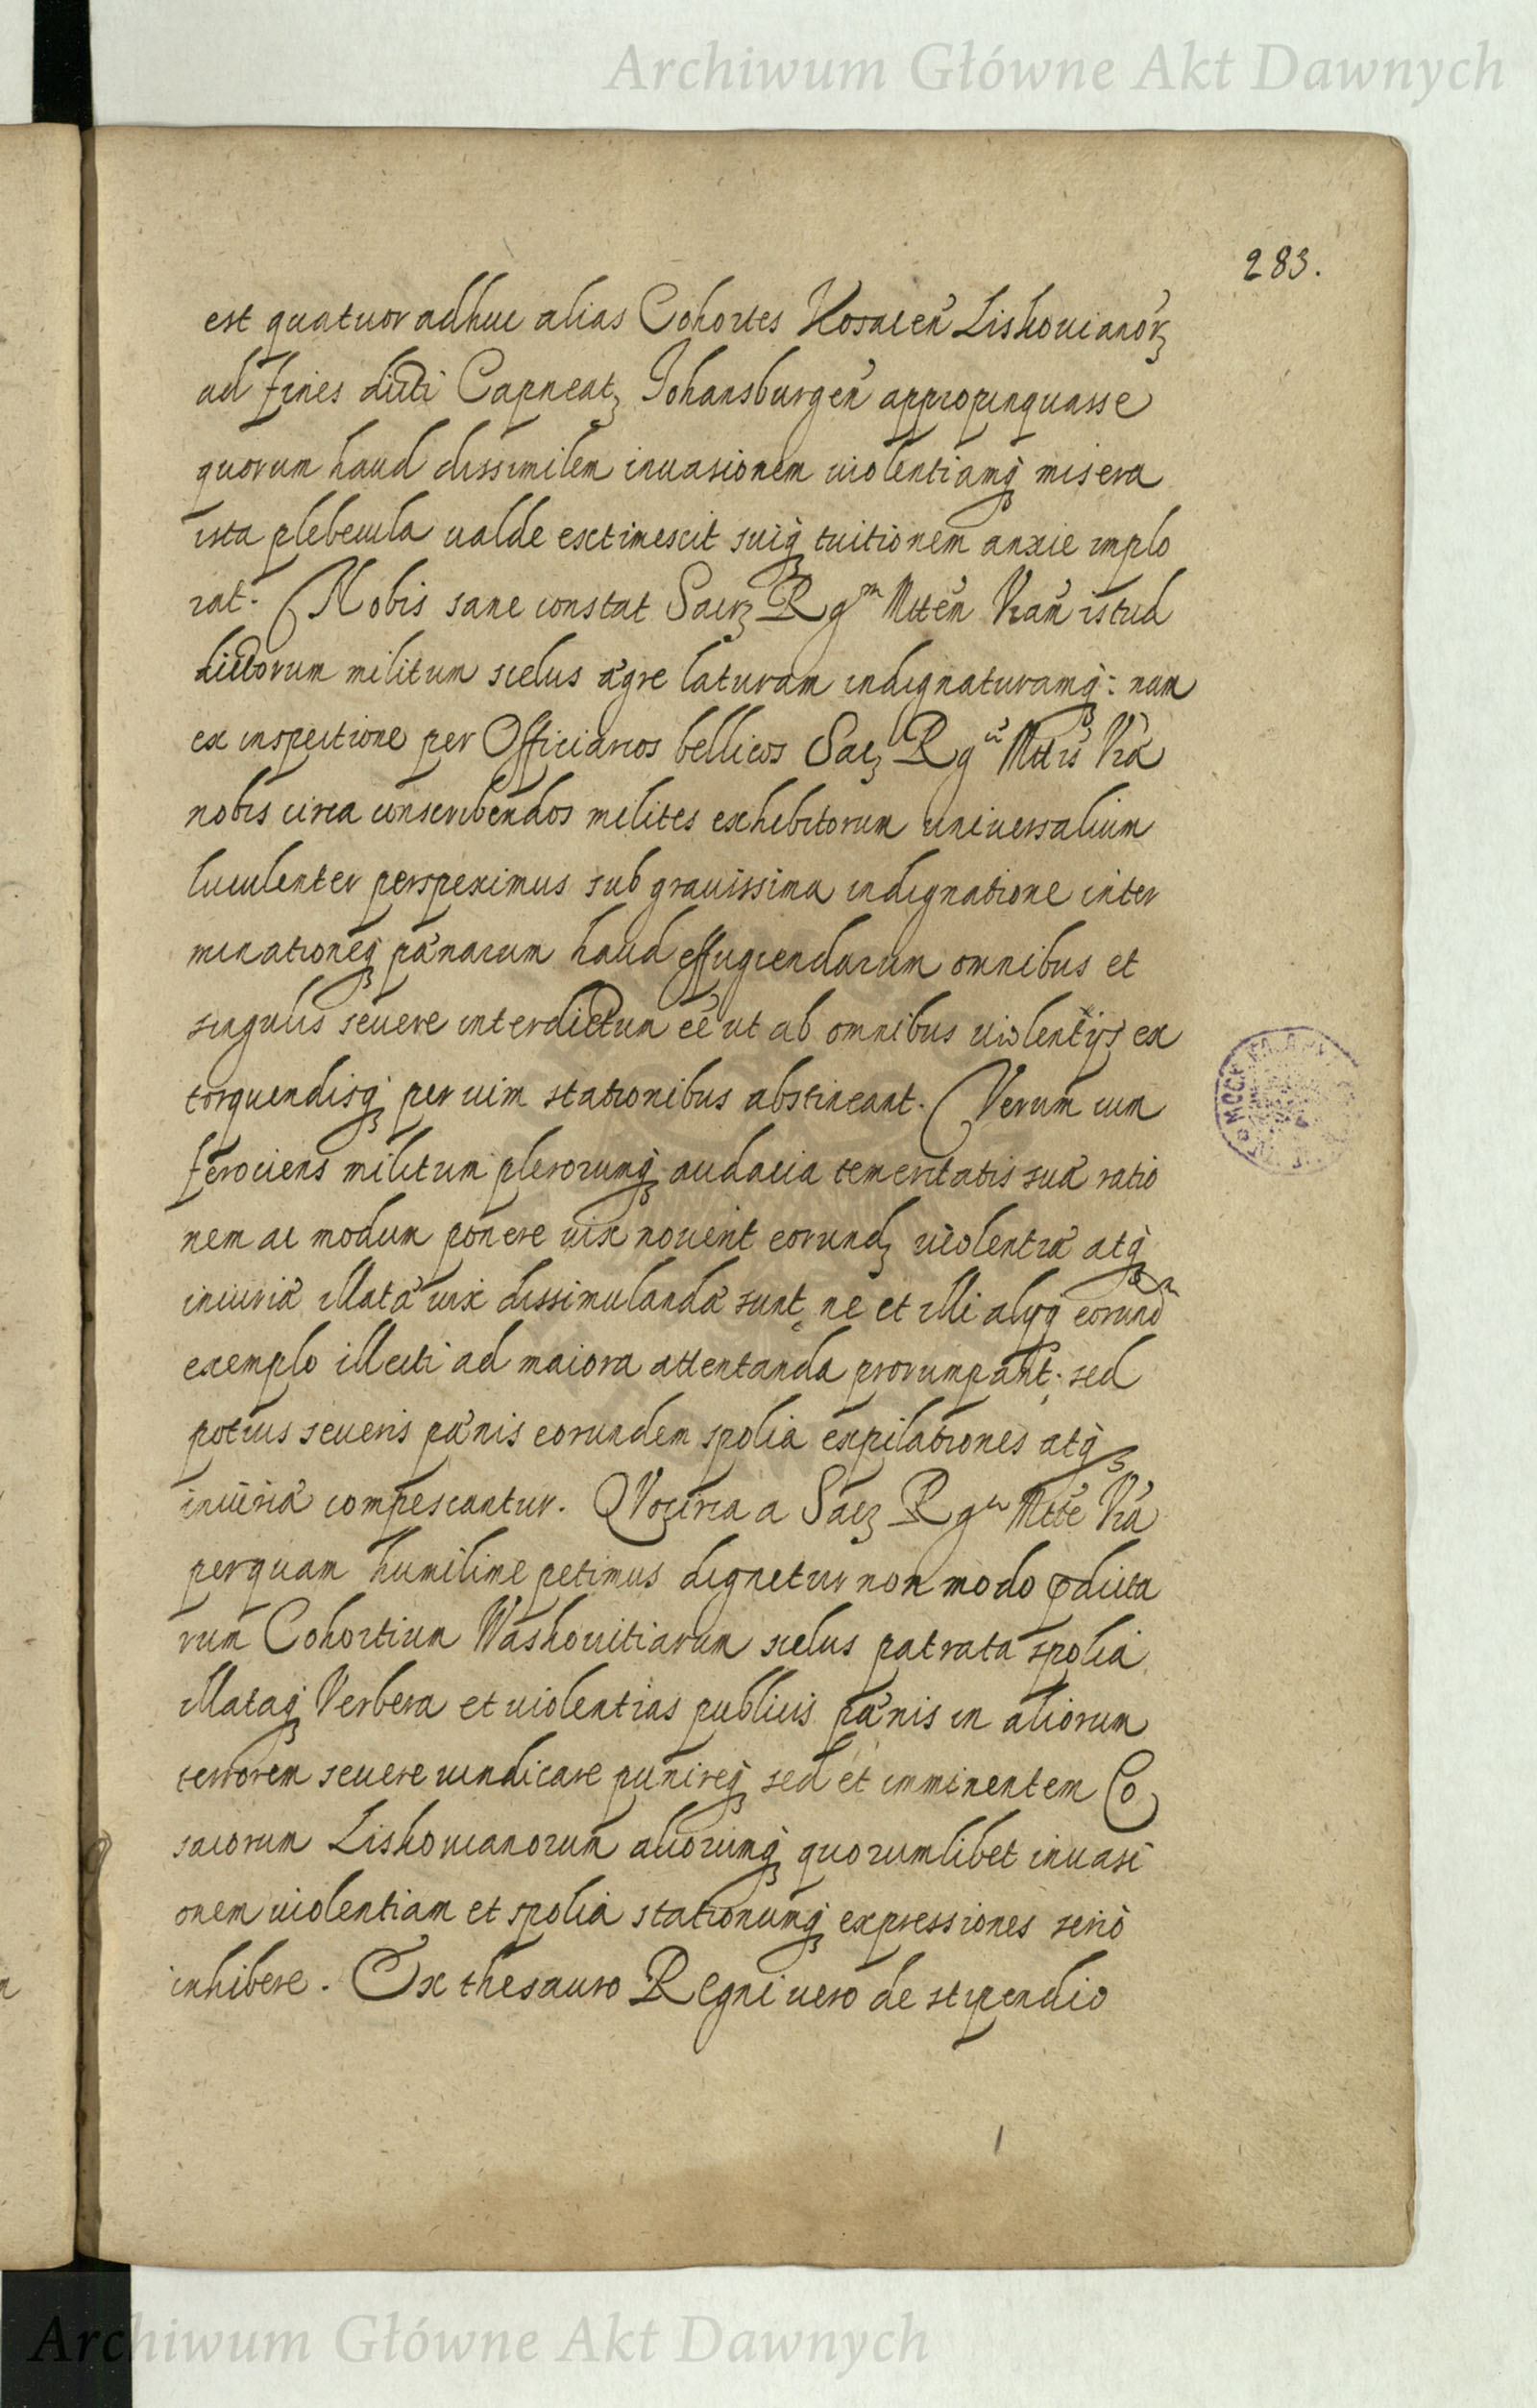 Archiwum Główne Akt Dawnych
283.
est quatuor adhuc alias Cohortes Kosacen̄ Lishouianorꝝ
ad fines dicti Capneatꝫ Johansburgen̄ appropinquasse
quorum haud dissimilem inuasionem uiolentiamqꝫ misera
ista plebecula ualde extimescit suiqꝫ tuitionem anxie implo
rat. Nobis sane constat Sacrꝫ Rgᵐ Mttēn Vrān istud
dictorum militum scelus ægre laturam indignaturamqꝫ: nam
ex inspectione per Officiarios bellicos Sacꝫ Rg Mttis Vræ
nobis circa conscribendos milites exhibitorum uniuersalium
luculenter perspeximus sub grauissima indignatione inter
minationeqꝫ pænarum haud effugiendarum omnibus et
singulis seuere interdictum ēē ut ab omnibus uiolentijs ex
torquendisqꝫ per uim stationibus abstineant. Verum cum
ferociens militum plerorumqꝫ audacia temeritatis suæ ratio
nem ac modum ponere uix nouerit eorundꝫ uiolentiæ atqꝫ
iniuriæ illatæ uix dissimulandæ sunt, ne et illi alijqꝫ eorund
exemplo illecti ad maiora attentanda prorumpant: sed
potius seueris pænis eorundem spolia expilationes atqꝫ
iniuriæ compescantur. QVocirca a Sacꝫ Rg Mtte Vra
perquam humilime petimus dignetur non modo p̄dicta
rum Cohortium Washouitiarum scelus patrata spolia
illataqꝫ Verbera et uiolentias publicis pænis in aliorum
terrorem seuere uindicare punireqꝫ sed et imminentem Co
sacorum Lishouianorum aliorumqꝫ quorumlibet inuasi
onem uiolentiam et spolia stationumqꝫ expressiones serio
inhibere. Ex thesauro Regni uero de stipendio
Archiwum Główne Akt Dawnych